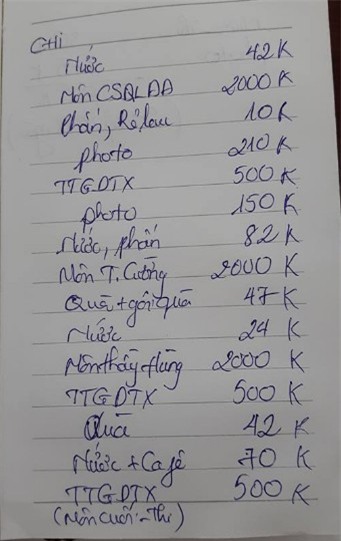 CHI
Nước 42 K
Môn CSQLĐĐ 2000 K
Phấn, Rẻ lau 10 K
photo 210 K
TTGDTX 500 K
photo 150 K
Nước, phấn 82 K
Môn T. Cường 2000 K
Quà + gói quà 47 K
Nước 24 K
Môn thầy Hùng 2000 K
TTGDTX 500 K
Quà 42 K
Nước + Cafê 70 K
TTGDTX 500 K
(Môn cuối: - Thi)